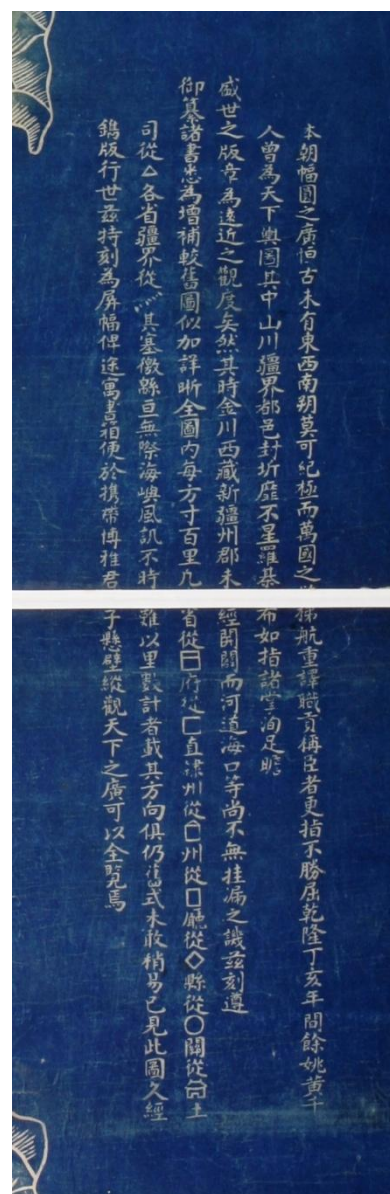 本朝幅圓之廣恒古未有東西南朔莫可紀極而萬國之梯航重譯職貢稱臣者更指不勝屈乾隆丁亥年間餘姚黃千
人曾為天下輿圖其中山川疆界都邑封圻靡不星羅棊布如指諸掌洵足瞻
盛世之版章為遠近之觀度矣然其時金川西藏新疆州郡未經開闢而河道海口等尚不無挂漏之譏茲刻遵
御纂諸書悉為增補較舊圖似加詳晰全圖內每方寸百里凡省從府從□直隸州從州從▯廳從◇縣從○關從土
司從△各省疆界從其塞徼緜亘無際海嶼風訊不時難以里數計者載其方向俱仍舊式未敢稍易已見此圖久經
鐫版行世茲特刻為屏幅俾途寓書箱便於携帶博雅君子懸壁縱觀天下之廣可以全覽焉